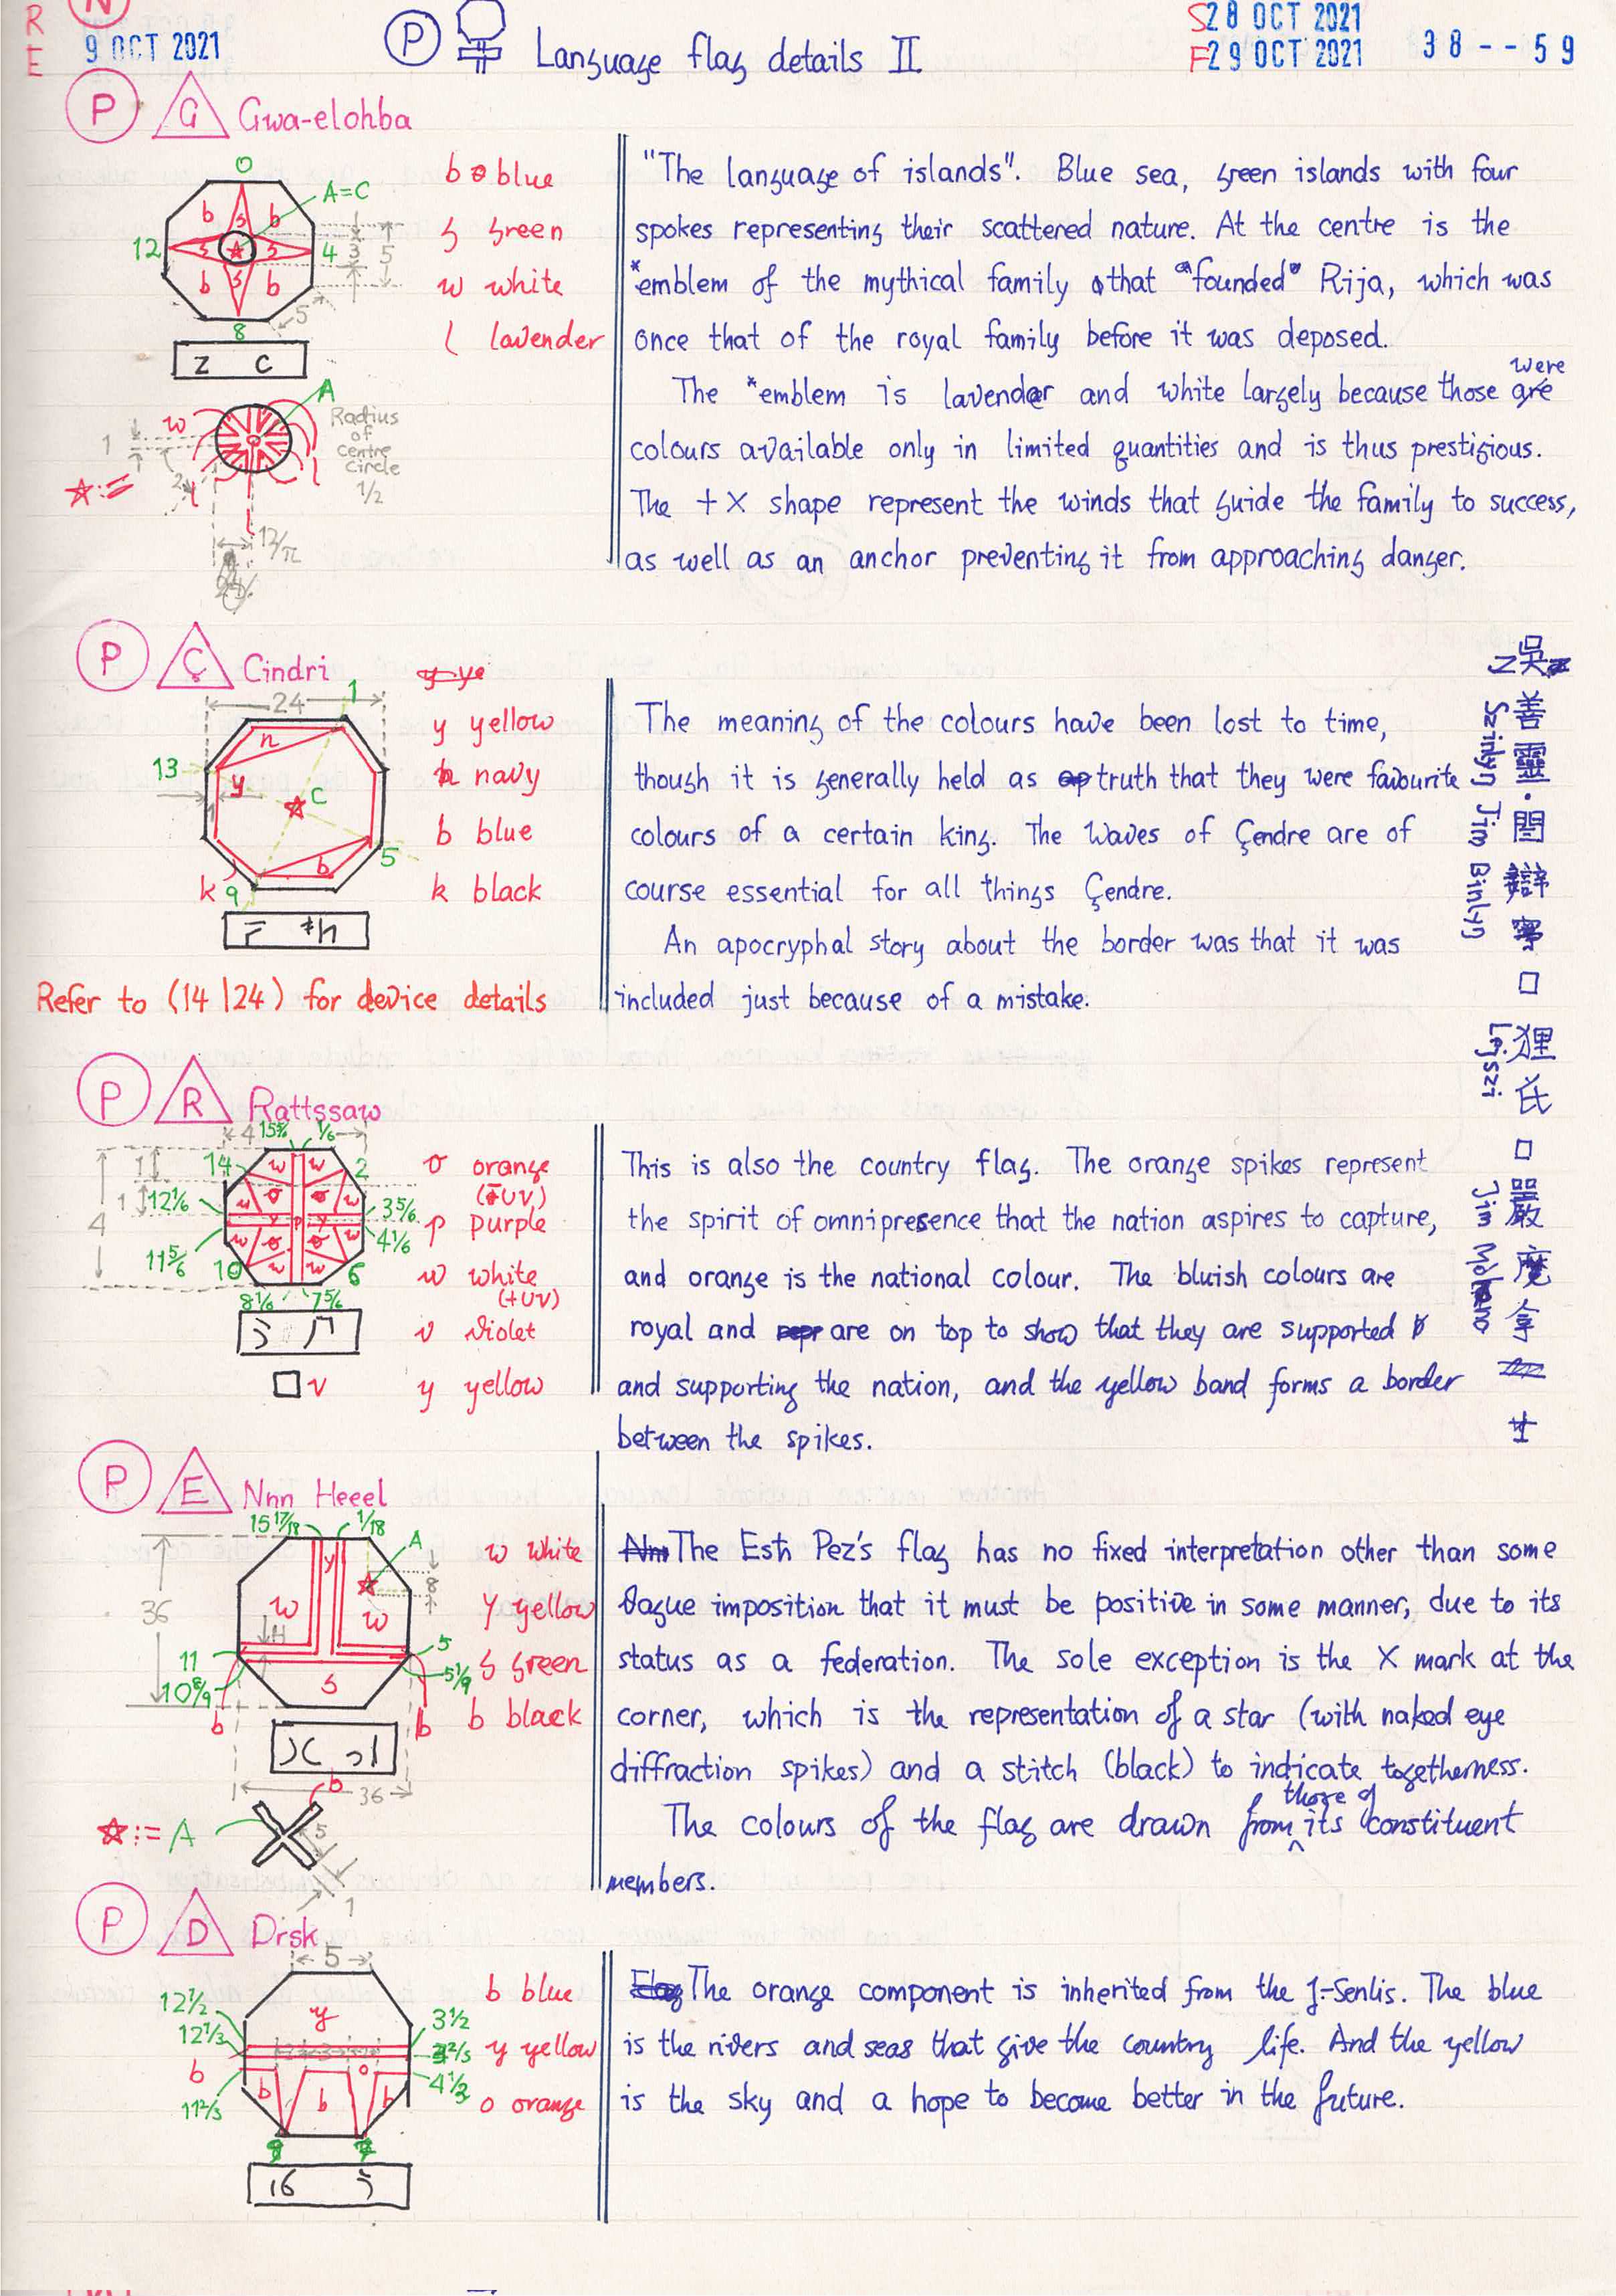 R
E
N
9 OCT 2021
P
Language flag details II
S28 OCT 2021
F29 OCT 2021
38--59
P G Gwa-elohba
0
A=C
12
4
3
5
8
5
b b
b b
z c
b blue
g green
w white
l lavender
A
w
Radius
of
centre
circle
1/2
1
2
l
l
12/π
☆:=
"The language of islands". Blue sea, green islands with four
spokes representing their scattered nature. At the centre is the
*emblem of the mythical family that "founded" Rija, which was
once that of the royal family before it was deposed.
The *emblem is lavender and white largely because those were
colours available only in limited quantities and is thus prestigious.
The + X shape represent the winds that guide the family to success,
as well as an anchor preventing it from approaching danger.
P Ç Cindri
24
1
13
n
y
C
5
b
k 9
y yellow
n navy
b blue
k black
Refer to (14|24) for device details
The meaning of the colours have been lost to time,
though it is generally held as truth that they were favourite
colours of a certain king. The Waves of Çendre are of
course essential for all things Çendre.
An apocryphal story about the border was that it was
included just because of a mistake.
吳善靈·誾辯寧
Szinlyn Jim Binlyn
狸氏
嚴魔拿
P R Rattssaw
4
15⅚
⅙
14
2
12⅙
3⅚
4⅙
11⅚
10
6
8⅙
7⅚
1
1
4
□ v
o orange
(+UV)
p purple
w white
(+UV)
v violet
y yellow
This is also the country flag. The orange spikes represent
the spirit of omnipresence that the nation aspires to capture,
and orange is the national colour. The bluish colours are
royal and are on top to show that they are supported
and supporting the nation, and the yellow band forms a border
between the spikes.
P E Nnn Heeel
15 17/18
1/18
A
y
8
36
w
w
11
5
10 8/9
5 1/9
g
b
b
36
b
☆:=A
5
1
w white
y yellow
g green
b black
The Esh Pez's flag has no fixed interpretation other than some
vague imposition that it must be positive in some manner, due to its
status as a federation. The sole exception is the X mark at the
corner, which is the representation of a star (with naked eye
diffraction spikes) and a stitch (black) to indicate togetherness.
The colours of the flag are drawn from those of its constituent
members.
P D Drsk
5
12½
12⅓
y
3½
b
4⅓
11⅔
b
b
o
b
16
b blue
y yellow
o orange
The orange component is inherited from the J-Senlis. The blue
is the rivers and seas that give the country life. And the yellow
is the sky and a hope to become better in the future.